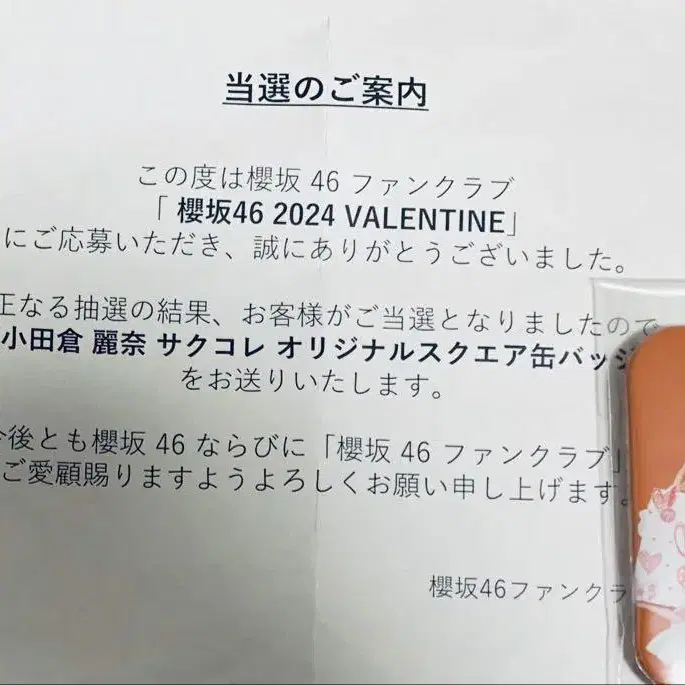 当選のご案内
この度は櫻坂 46 ファンクラブ
「 櫻坂46 2024 VALENTINE」
にご応募いただき、誠にありがとうございました。
正なる抽選の結果、お客様がご当選となりましたので
小田倉 麗奈 サクコレ オリジナルスクエア缶バッジ
をお送りいたします。
今後とも櫻坂 46 ならびに「櫻坂 46 ファンクラブ」
ご愛顧賜りますようよろしくお願い申し上げます。
櫻坂46ファンクラ